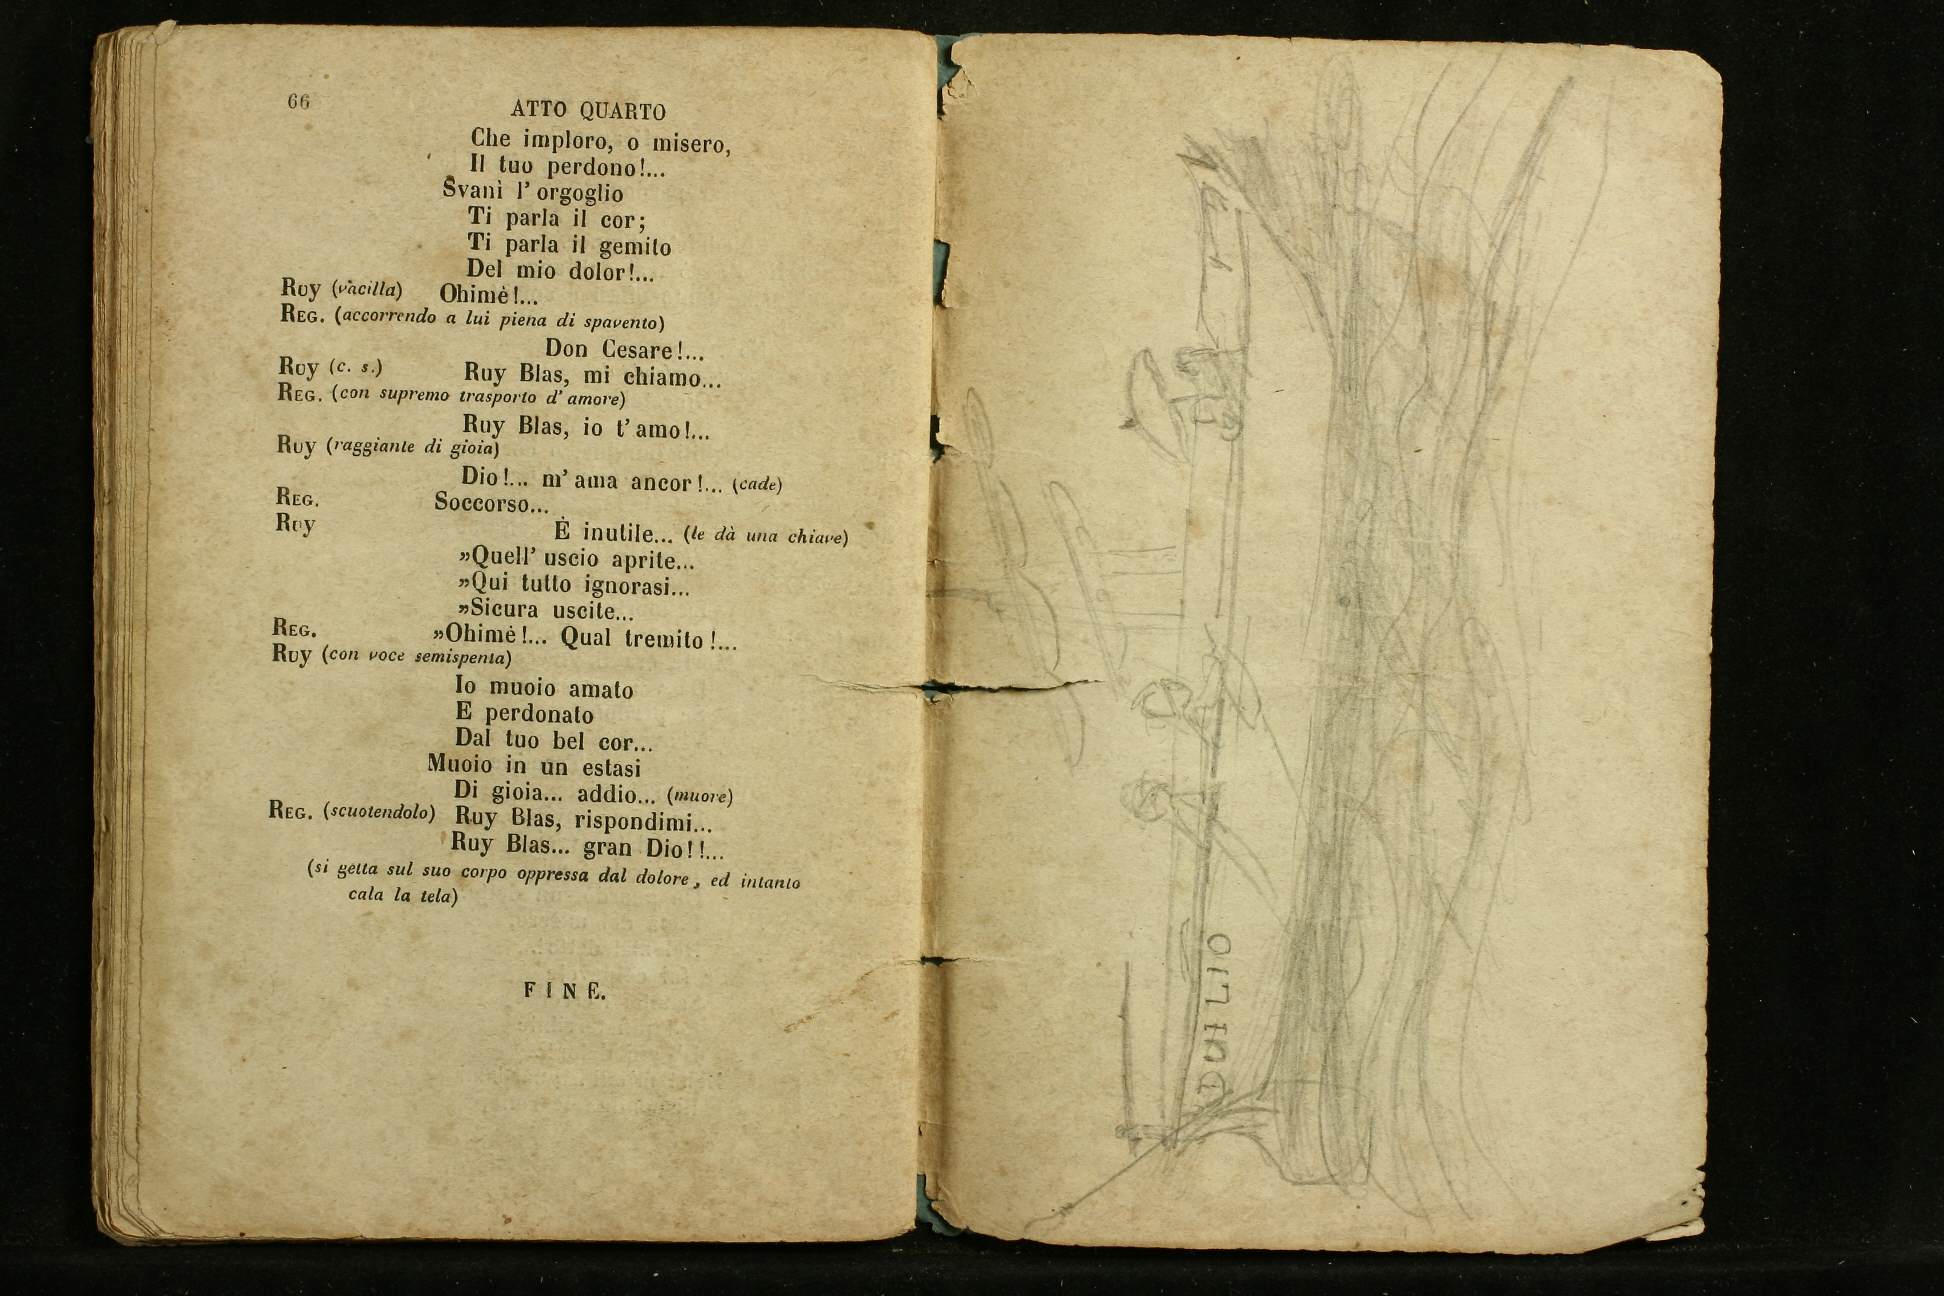 66
ATTO QUARTO
Che imploro, o misero,
Il tuo perdono!...
Svanì l' orgoglio
Ti parla il cor;
Ti parla il gemito
Del mio dolor!...
RUY (vacilla) Ohimè!...
REG. (accorrendo a lui piena di spavento)
Don Cesare!...
RUY (c. s.) Ruy Blas, mi chiamo...
REG. (con supremo trasporto d' amore)
Ruy Blas, io t' amo!...
RUY (raggiante di gioia)
Dio!... m' ama ancor!... (cade)
REG. Soccorso...
RUY È inutile... (le dà una chiave)
»Quell' uscio aprite...
»Qui tutto ignorasi...
»Sicura uscite...
REG. »Ohimè!... Qual tremito!...
RUY (con voce semispenta)
Io muoio amato
E perdonato
Dal tuo bel cor...
Muoio in un estasi
Di gioia... addio... (muore)
REG. (scuotendolo) Ruy Blas, rispondimi...
Ruy Blas... gran Dio!!...
(si getta sul suo corpo oppressa dal dolore, ed intanto
cala la tela)
FINE.